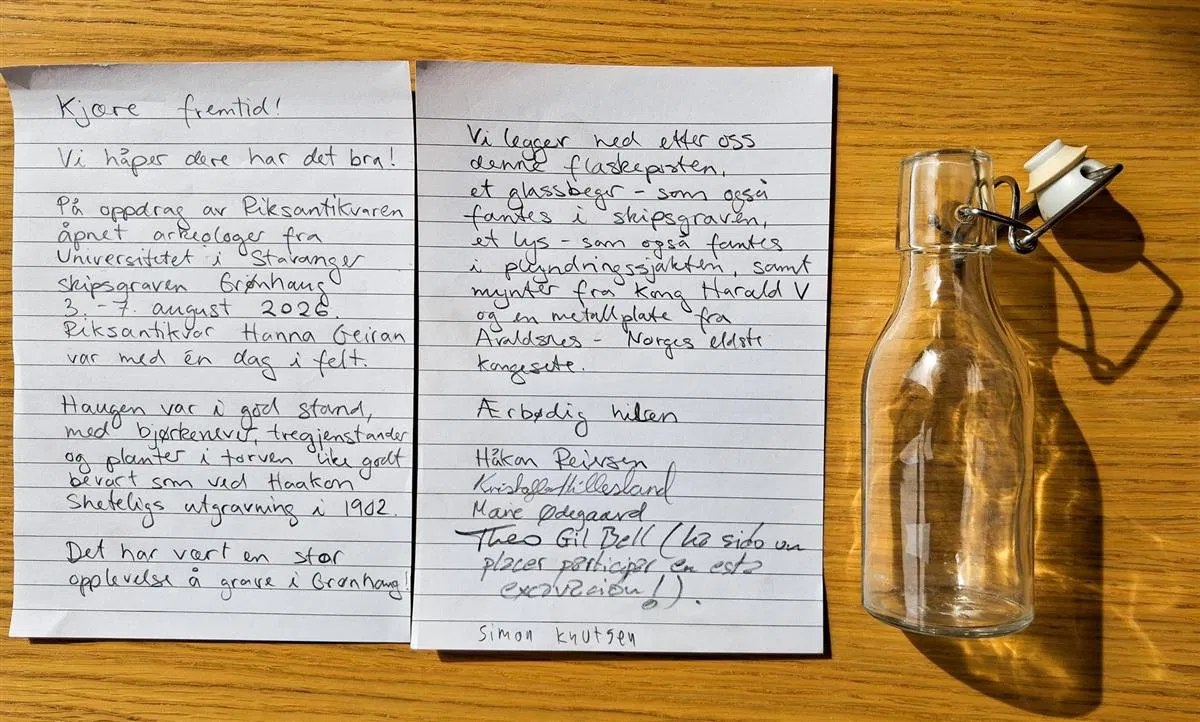 Kjære fremtid!
Vi håper dere har det bra!
På oppdrag av Riksantikvaren
åpnet arkeologer fra
Universitetet i Stavanger
skipsgraven Grønhaug
3. - 7. august 2026.
Riksantikvar Hanna Geiran
var med én dag i felt.
Haugen var i god stand,
med bjørkenever, tregjenstander
og planter i torven like godt
bevart som ved Haakon
Sheteligs utgravning i 1902.
Det har vært en stor
opplevelse å grave i Grønhaug!
Vi legger ned etter oss
denne flaskeposten,
et glassbeger - som også
fantes i skipsgraven,
et lys - som også fantes
i plyndringssjakten, samt
mynter fra Kong Harald V
og en metallplate fra
Avaldsnes - Norges eldste
kongesete.
Ærbødig hilsen
Håkon Reiersen
Kristoffer Hillesland
Marie Ødegaard
Theo Gil Bell (ha sido un
placer participar en esta
excavación!).
Simon Knutsen